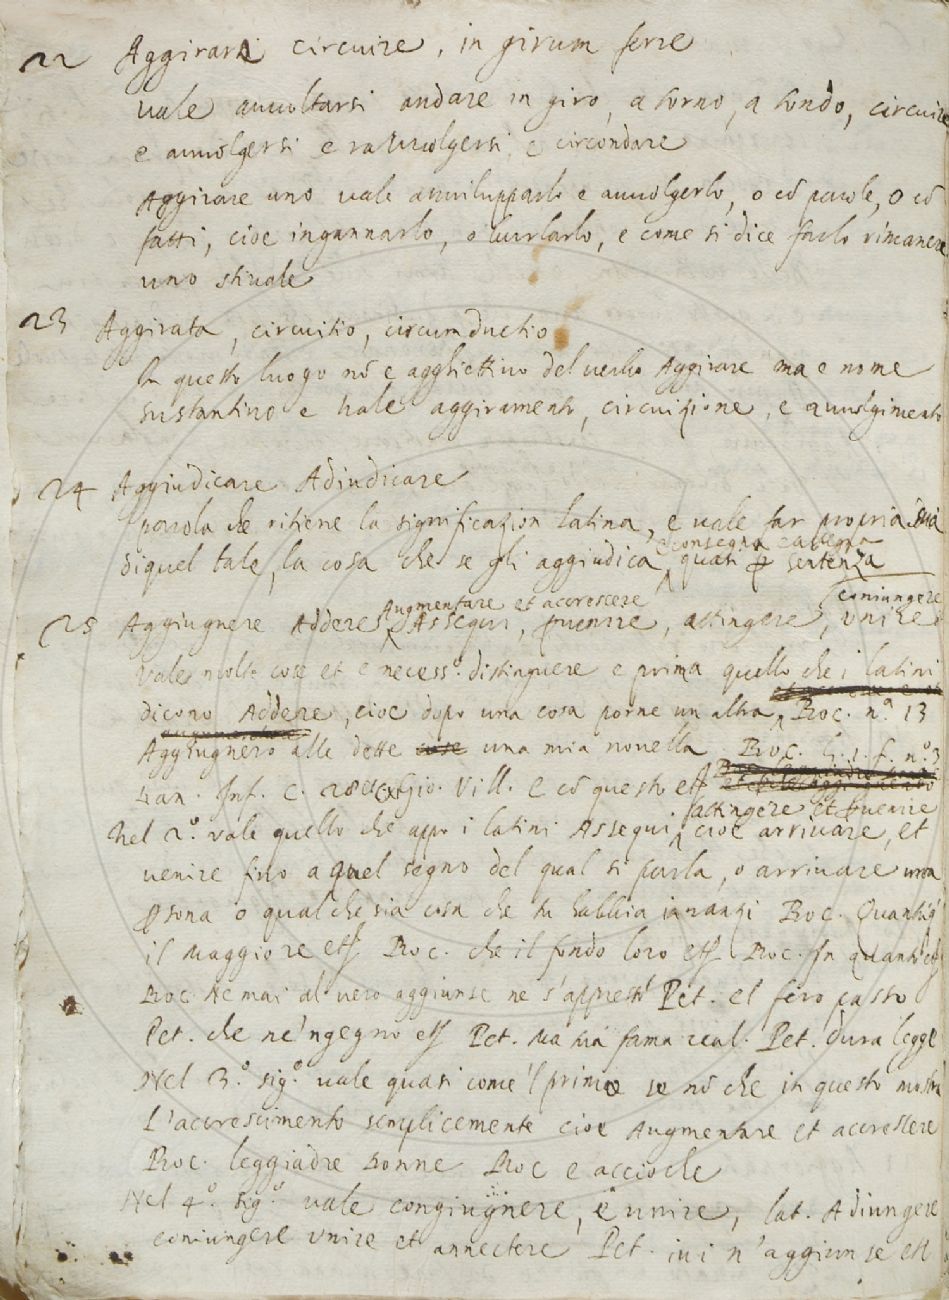 22 Aggirarsi circuire, in girum ferre
vale avvoltarsi andare in giro, a torno, a tondo, circuire
e avvolgersi e ravvolgersi, e circondare
Aggirare uno vale avvilupparlo e avvolgerlo, o cõ parole, o cõ
fatti, cioe ingannarlo, o burlarlo, e come si dice farlo rimanere
uno stivale
23 Aggirata, circuitio, circumductio
In questo luogo nõ e agghiettivo del verbo Aggirare ma e nome
sustantivo e vale aggiramento, circuizione, e avvolgimento
24 Aggiudicare Adiudicare
parola che ritiene la significazion latina, e vale far propria sua
consegna
di quel tale, la cosa che se gli aggiudica, quasi ꝑ sentenza
Augmentare et accrescere coniungere
25 Aggiugnere Addere, Assequi, ꝑuenire, attingere, unire
vale molte cose et e necess.o distinguere e prima quello che i latini
dicono Addere, cioe dopo una cosa porne un altra, Boc. n.o 13
Aggiugnero alle dette una mia novella Boc. G. 1. f. n.o 3
Dan. Inf. C. 28 Gio. Vill. E cõ questo
attingere et ꝑuenire
Nel 2.o vale quello che appo i latini Assequi, cioe arrivare, et
venire fino a quel segno del qual si parla, o arrivare una
ꝑsona o qual che sia cosa che tu habbia innanzi Boc.
il maggiore Boc. che il fondo loro Boc. In
Boc. Ne mai al vero aggiunse ne s'appressò Pet. el fero passo
Pet. che ne'ngegno Pet. Ma mia fama real. Pet. dura legge
Nel 3.o sig.o vale quasi come'l primo se nõ che in questo mostra
L'accrescimento semplicemente cioe Augmentare et accrescere
Boc. leggiadre donne Boc e accioche
Nel 4.o sig.o vale congiugnere, e unire, lat. Adiungere
coniungere unire et annectere Pet. ivi n'aggiunse